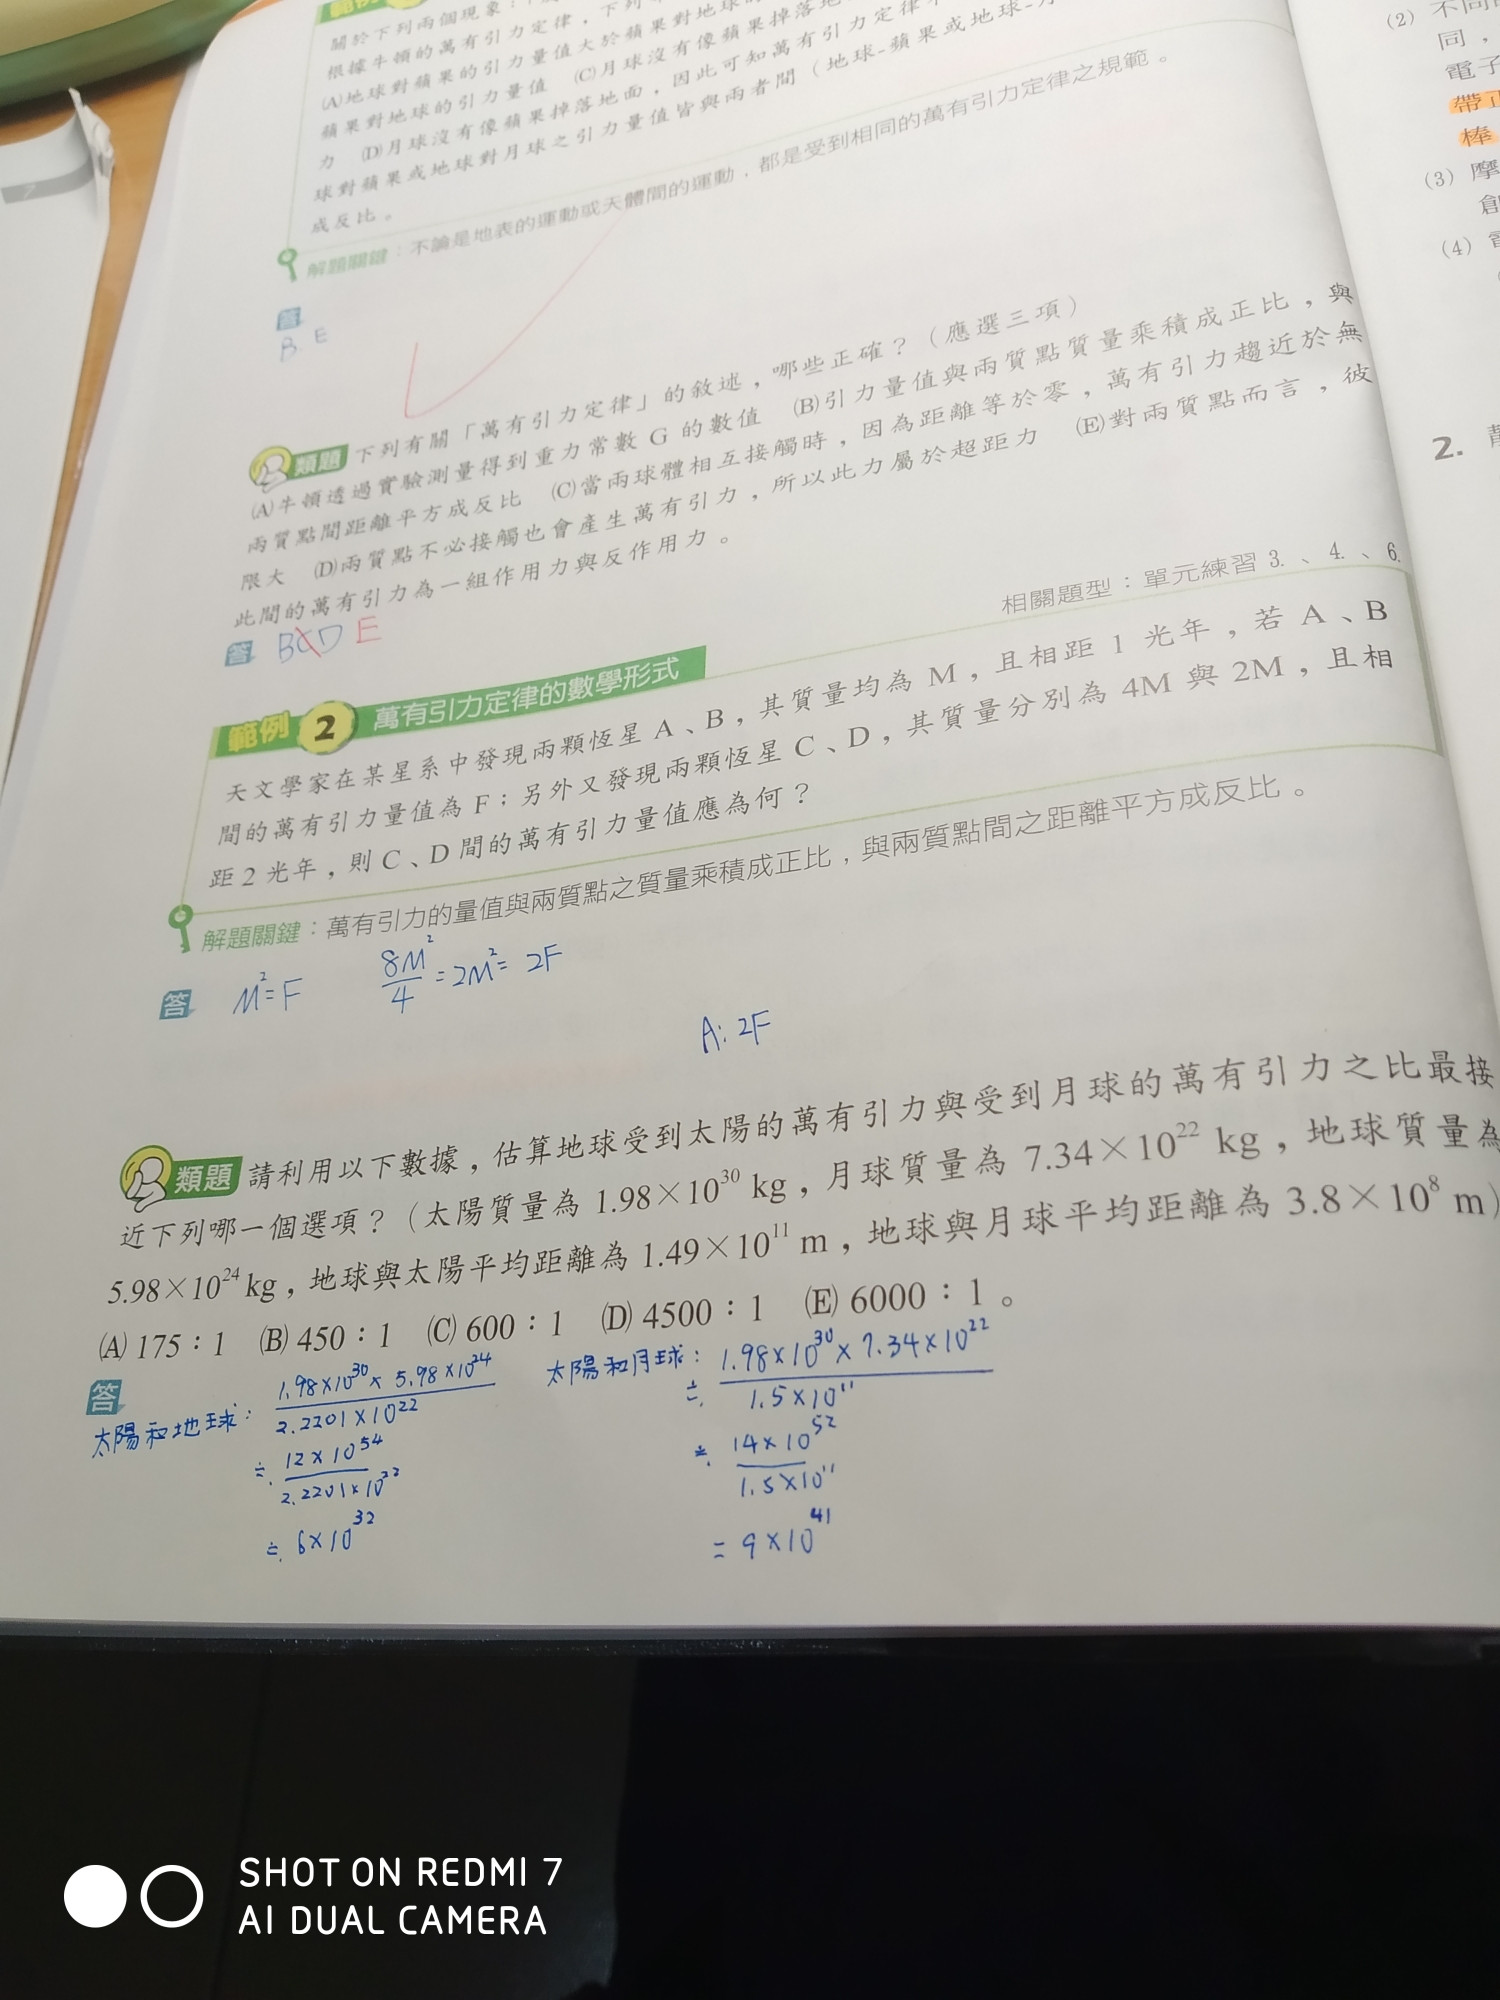 範例
關於下列兩個現象：「
根據牛頓的萬有引力定律，下列
(A)地球對蘋果的引力量值大於蘋果對地球的
蘋果對地球的引力量值　(C)月球沒有像蘋果掉落地
力　(D)月球沒有像蘋果掉落地面，因此可知萬有引力定律
球對蘋果或地球對月球之引力量值皆與兩者間（地球-蘋果或地球-
成反比。
解題關鍵：不論是地表的運動或天體間的運動，都是受到相同的萬有引力定律之規範。
答
B E
類題 下列有關「萬有引力定律」的敘述，哪些正確？（應選三項）
(A)牛頓透過實驗測量得到重力常數 G 的數值　(B)引力量值與兩質點質量乘積成正比，與
兩質點間距離平方成反比　(C)當兩球體相互接觸時，因為距離等於零，萬有引力趨近於無
限大　(D)兩質點不必接觸也會產生萬有引力，所以此力屬於超距力　(E)對兩質點而言，彼
此間的萬有引力為一組作用力與反作用力。
答 BCD E
相關題型：單元練習 3.、4.、6.
範例 2 萬有引力定律的數學形式
天文學家在某星系中發現兩顆恆星 A、B，其質量均為 M，且相距 1 光年，若 A、B
間的萬有引力量值為 F；另外又發現兩顆恆星 C、D，其質量分別為 4M 與 2M，且相
距 2 光年，則 C、D 間的萬有引力量值應為何？
解題關鍵：萬有引力的量值與兩質點之質量乘積成正比，與兩質點間之距離平方成反比。
答 M²=F　8M²/4=2M²=2F
A: 2F
類題 請利用以下數據，估算地球受到太陽的萬有引力與受到月球的萬有引力之比最接
近下列哪一個選項？（太陽質量為 1.98×10³⁰ kg，月球質量為 7.34×10²² kg，地球質量為
5.98×10²⁴ kg，地球與太陽平均距離為 1.49×10¹¹ m，地球與月球平均距離為 3.8×10⁸ m）
(A) 175：1　(B) 450：1　(C) 600：1　(D) 4500：1　(E) 6000：1。
答
太陽和地球： 1.98×10³⁰× 5.98×10²⁴
2.2201×10²²
≒ 12×10⁵⁴
2.2201×10²²
≒ 6×10³²
太陽和月球： 1.98×10³⁰×7.34×10²²
≒ 1.5×10¹¹
≒ 14×10⁵²
1.5×10¹¹
= 9×10⁴¹
(2) 不同
同，
電子
帶正
棒
(3) 摩
創
(4)
2.
SHOT ON REDMI 7
AI DUAL CAMERA